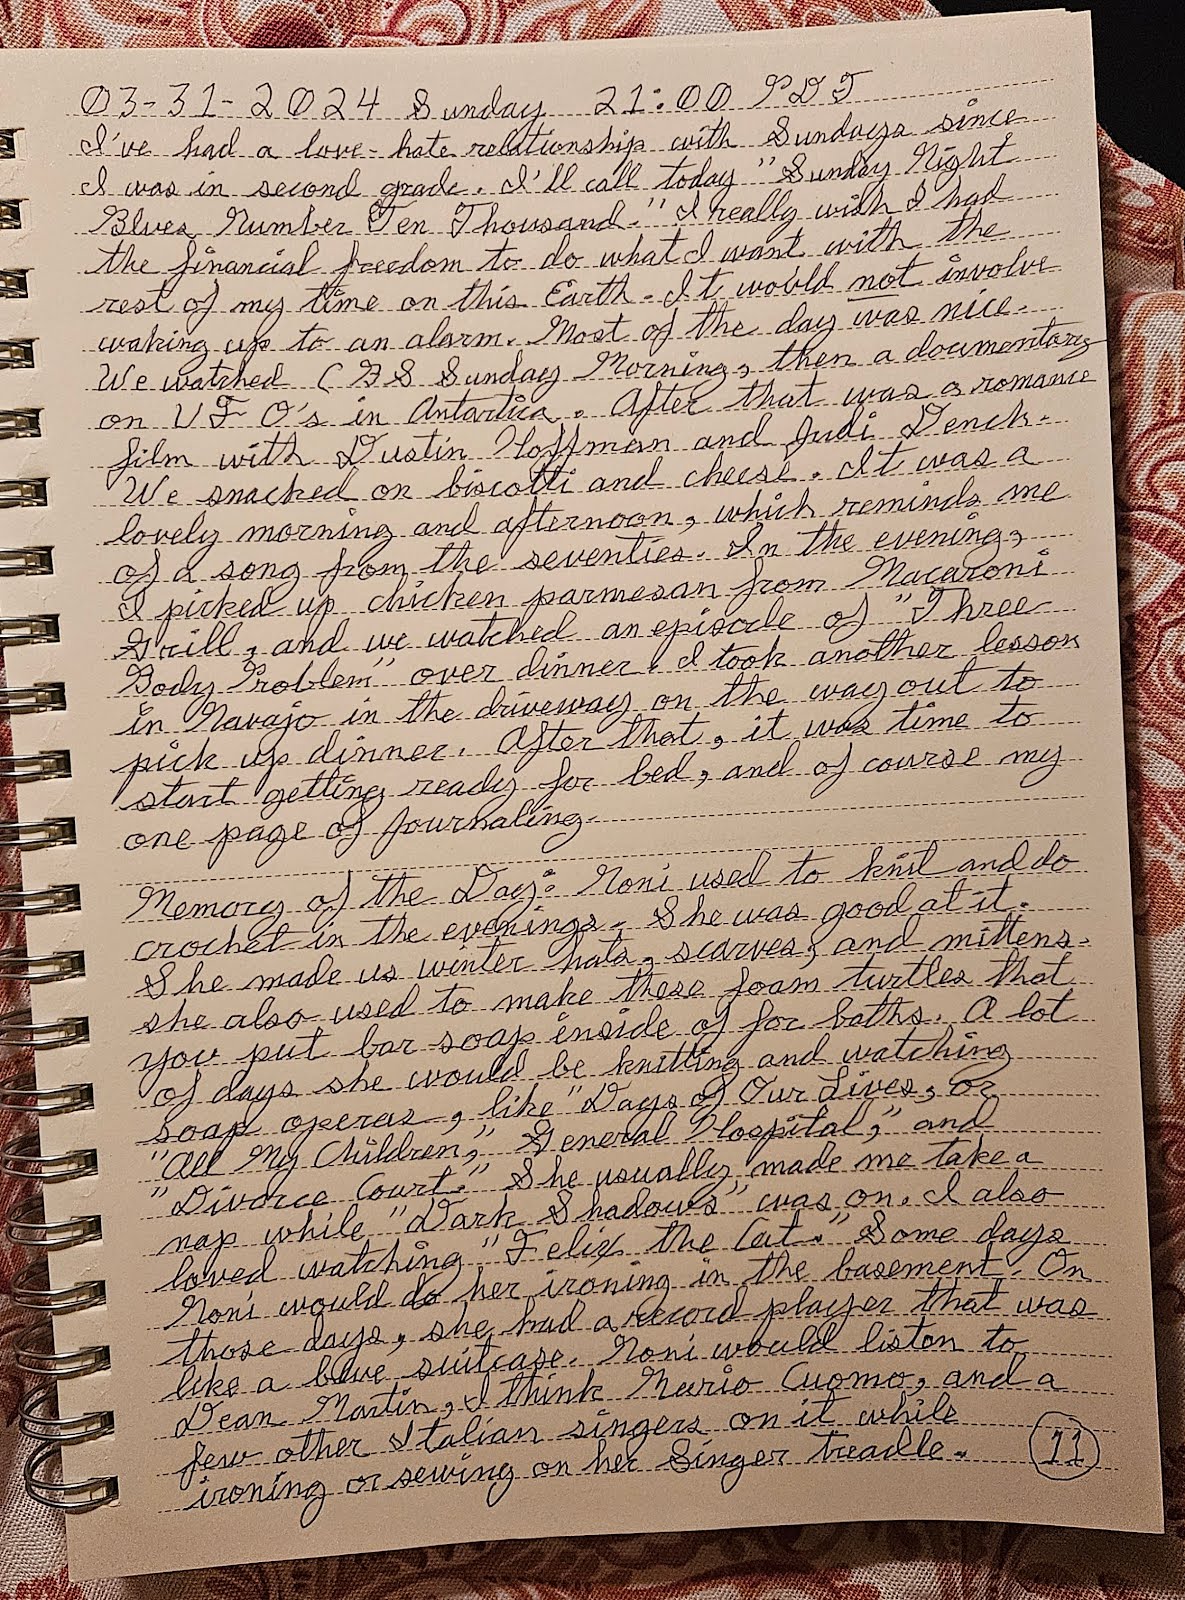 03-31-2024 Sunday 21:00 PDT
I've had a love-hate relationship with Sundays since
I was in second grade. I'll call today "Sunday Night
Blues Number Ten Thousand." I really wish I had
the financial freedom to do what I want with the
rest of my time on this Earth. It would not involve
waking up to an alarm. Most of the day was nice.
We watched CBS Sunday Morning, then a documentary
on UFO's in Antartica. After that was a romance
film with Dustin Hoffman and Judi Dench.
We snacked on biscotti and cheese. It was a
lovely morning and afternoon, which reminds me
of a song from the seventies. In the evening,
I picked up chicken parmesan from Macaroni
Grill, and we watched an episode of "Three
Body Problem" over dinner. I took another lesson
in Navajo in the driveway on the way out to
pick up dinner. After that, it was time to
start getting ready for bed, and of course my
one page of journaling.
Memory of the Day: Noni used to knit and do
crochet in the evenings. She was good at it.
She made us winter hats, scarves, and mittens.
She also used to make these foam turtles that
you put bar soap inside of for baths. A lot
of days she would be knitting and watching
soap operas, like "Days of Our Lives, or
"All My Children," General Hospital," and
"Divorce Court." She usually made me take a
nap while "Dark Shadows" was on. I also
loved watching "Felix the Cat." Some days
Noni would do her ironing in the basement. On
those days, she had a record player that was
like a blue suitcase. Noni would liston to
Dean Martin, I think Mario Cuomo, and a
few other Italian singers on it while
ironing or sewing on her Singer treadle.
11